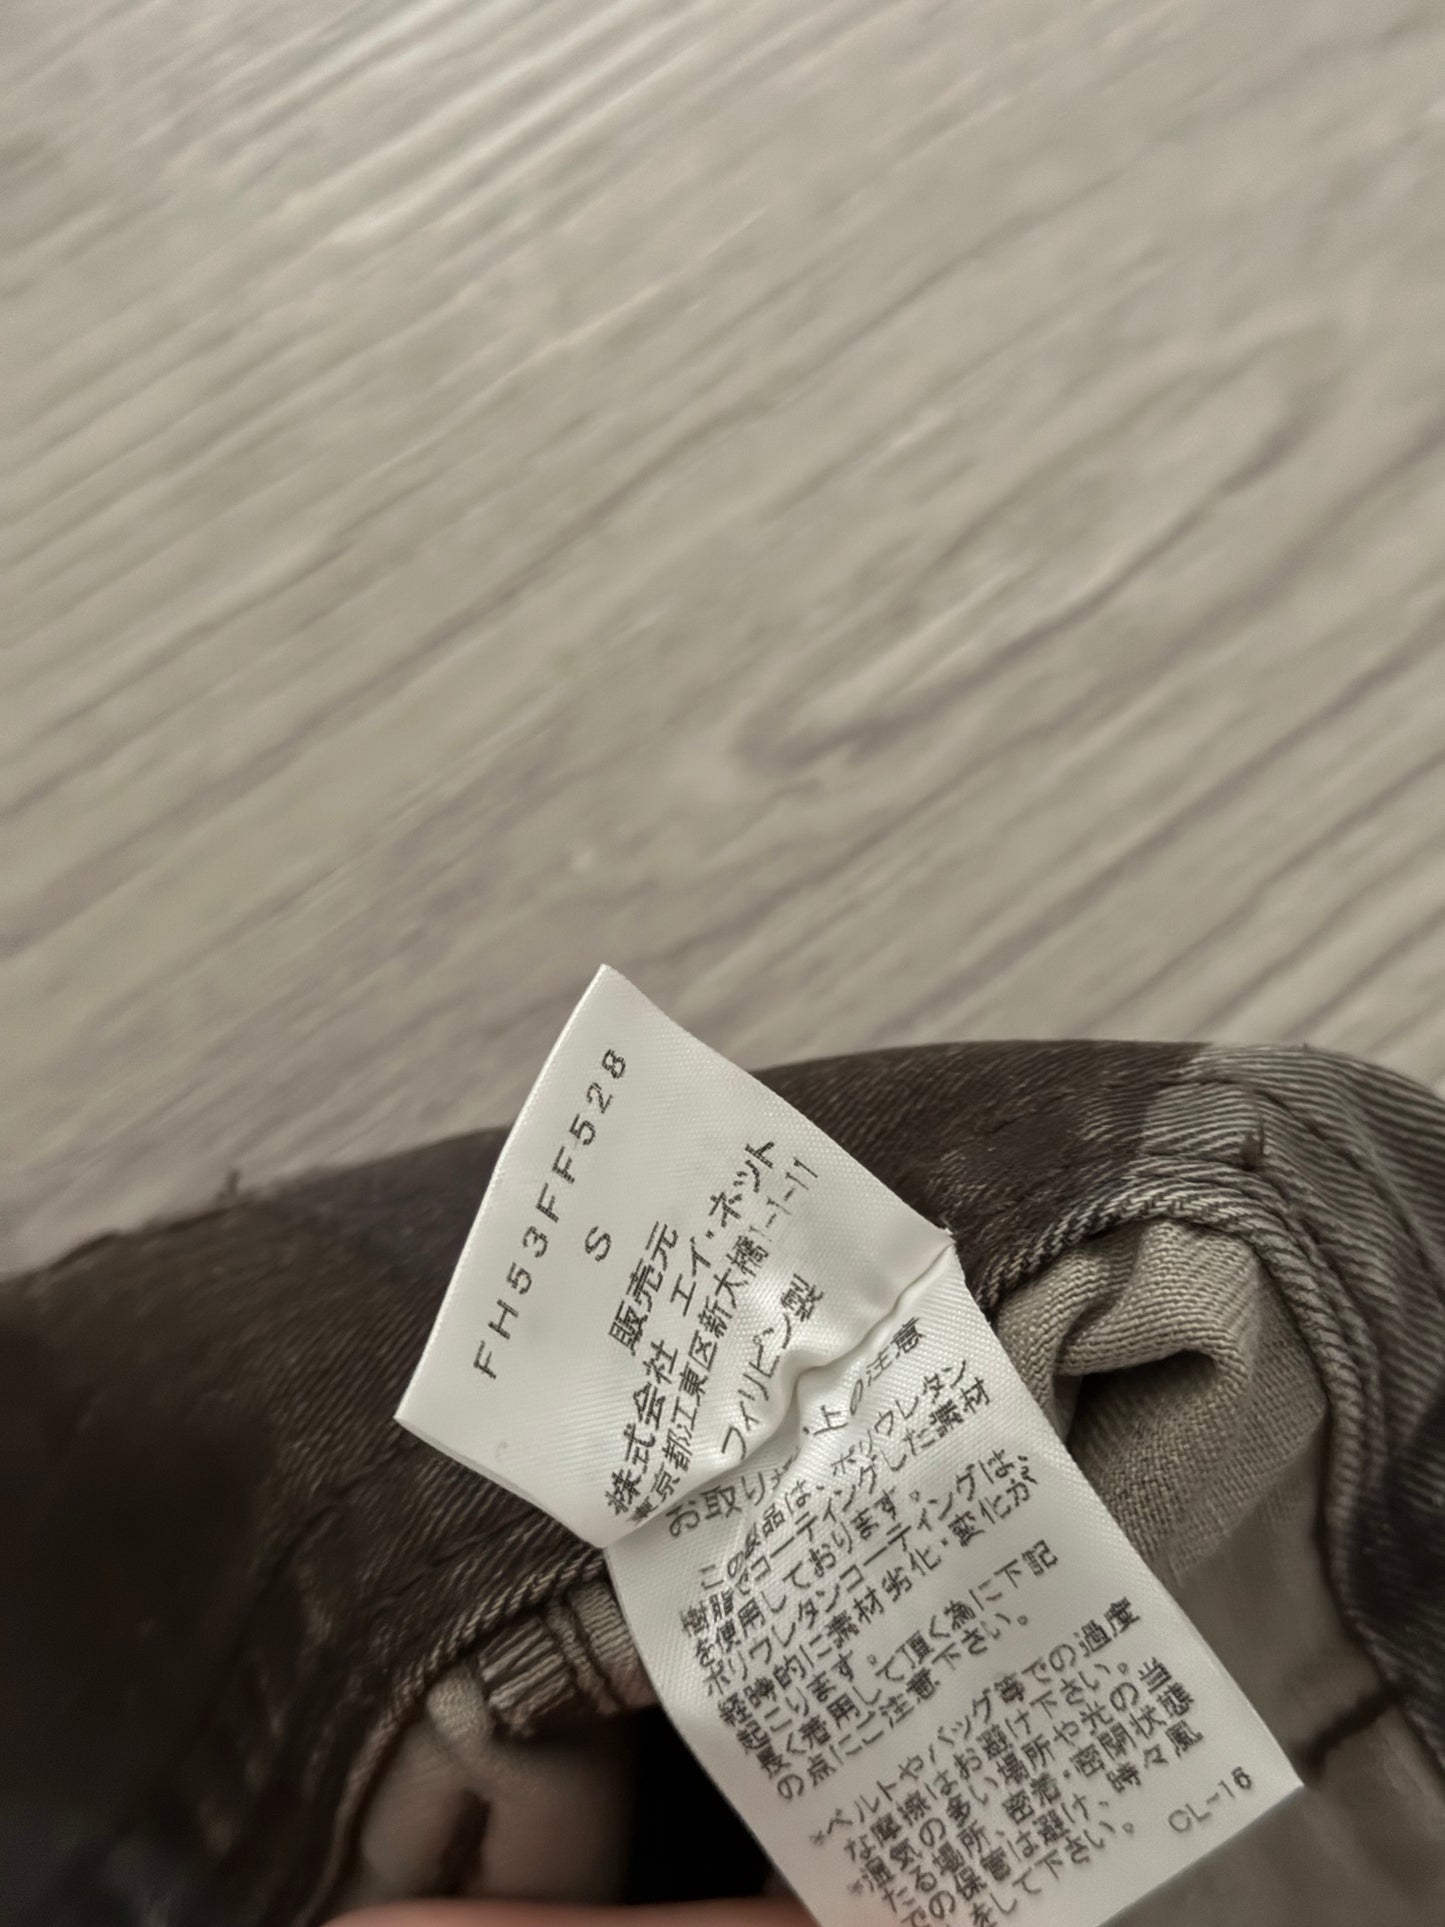 FH53FF528
S
販売元
株式会社 エイ・ネット
東京都江東区新大橋1-1-11
フィリピン製
お取り扱い上の注意
この製品は、ポリウレタン
樹脂でコーティングした素材
を使用しております。
ポリウレタンコーティングは
経時的に素材劣化・変化が
起こります。
長く着用して頂く為に下記
の点にご注意下さい。
*ベルトやバッグ等での過度
な摩擦はお避け下さい。
*湿気の多い場所や光の当
たる場所、密着・密閉状態
での保管は避け、時々風
をして下さい。
CL-16